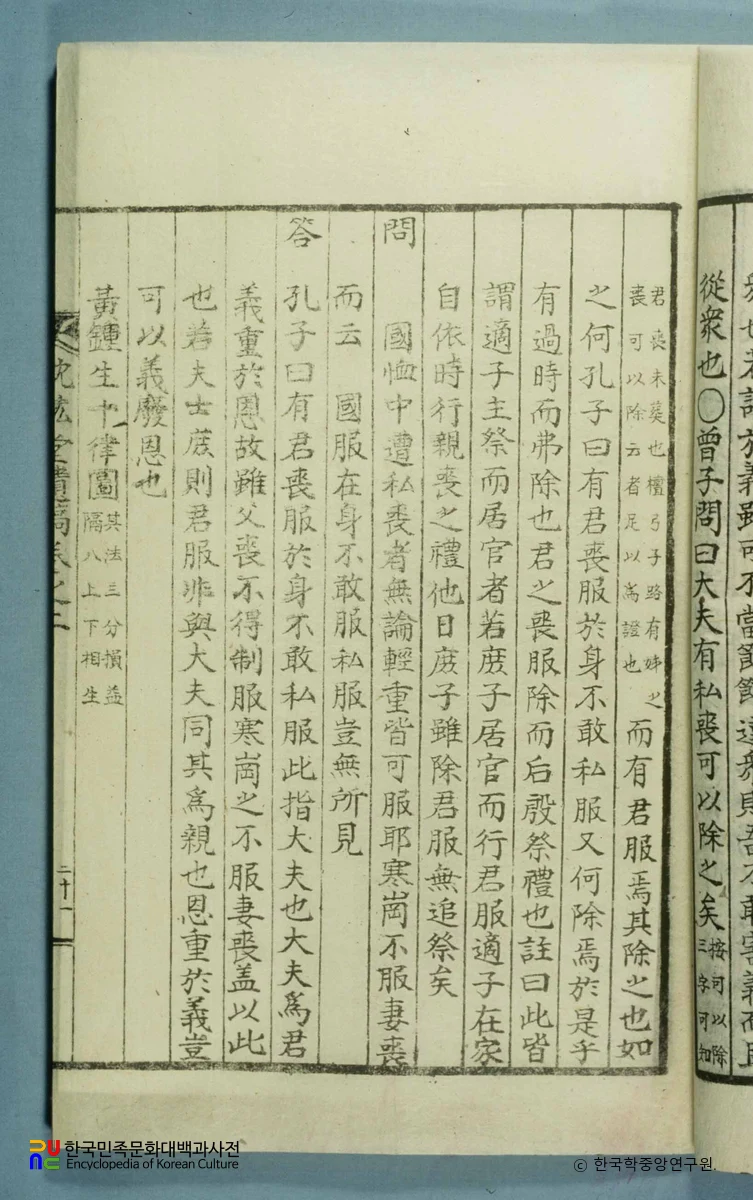 從衆也〇曾子問曰大夫有私喪可以除之矣按可以除
三字可知
君喪未葬也檀弓子路有姊之
喪可以除云者足以爲證也
而有君服焉其除之也如
之何孔子曰有君喪服於身不敢私服又何除焉於是乎
有過時而弗除也君之喪服除而后殷祭禮也註曰此皆
謂適子主祭而居官者若庶子居官而行君服適子在家
自依時行親喪之禮他日庶子雖除君服無追祭矣
問 國恤中遭私喪者無論輕重皆可服耶寒崗不服妻喪
而云 國服在身不敢服私服豈無所見
答 孔子曰有君喪服於身不敢私服此指大夫也大夫爲君
義重於恩故雖父喪不得制服寒崗之不服妻喪盖以此
也若夫士庶則君服非與大夫同其爲親也恩重於義豈
可以義廢恩也
黃鍾生十二律圖
其法三分損益
隔八上下相生
堂遺稿卷之二
二十一
한국민족문화대백과사전
Encyclopedia of Korean Culture
© 한국학중앙연구원.